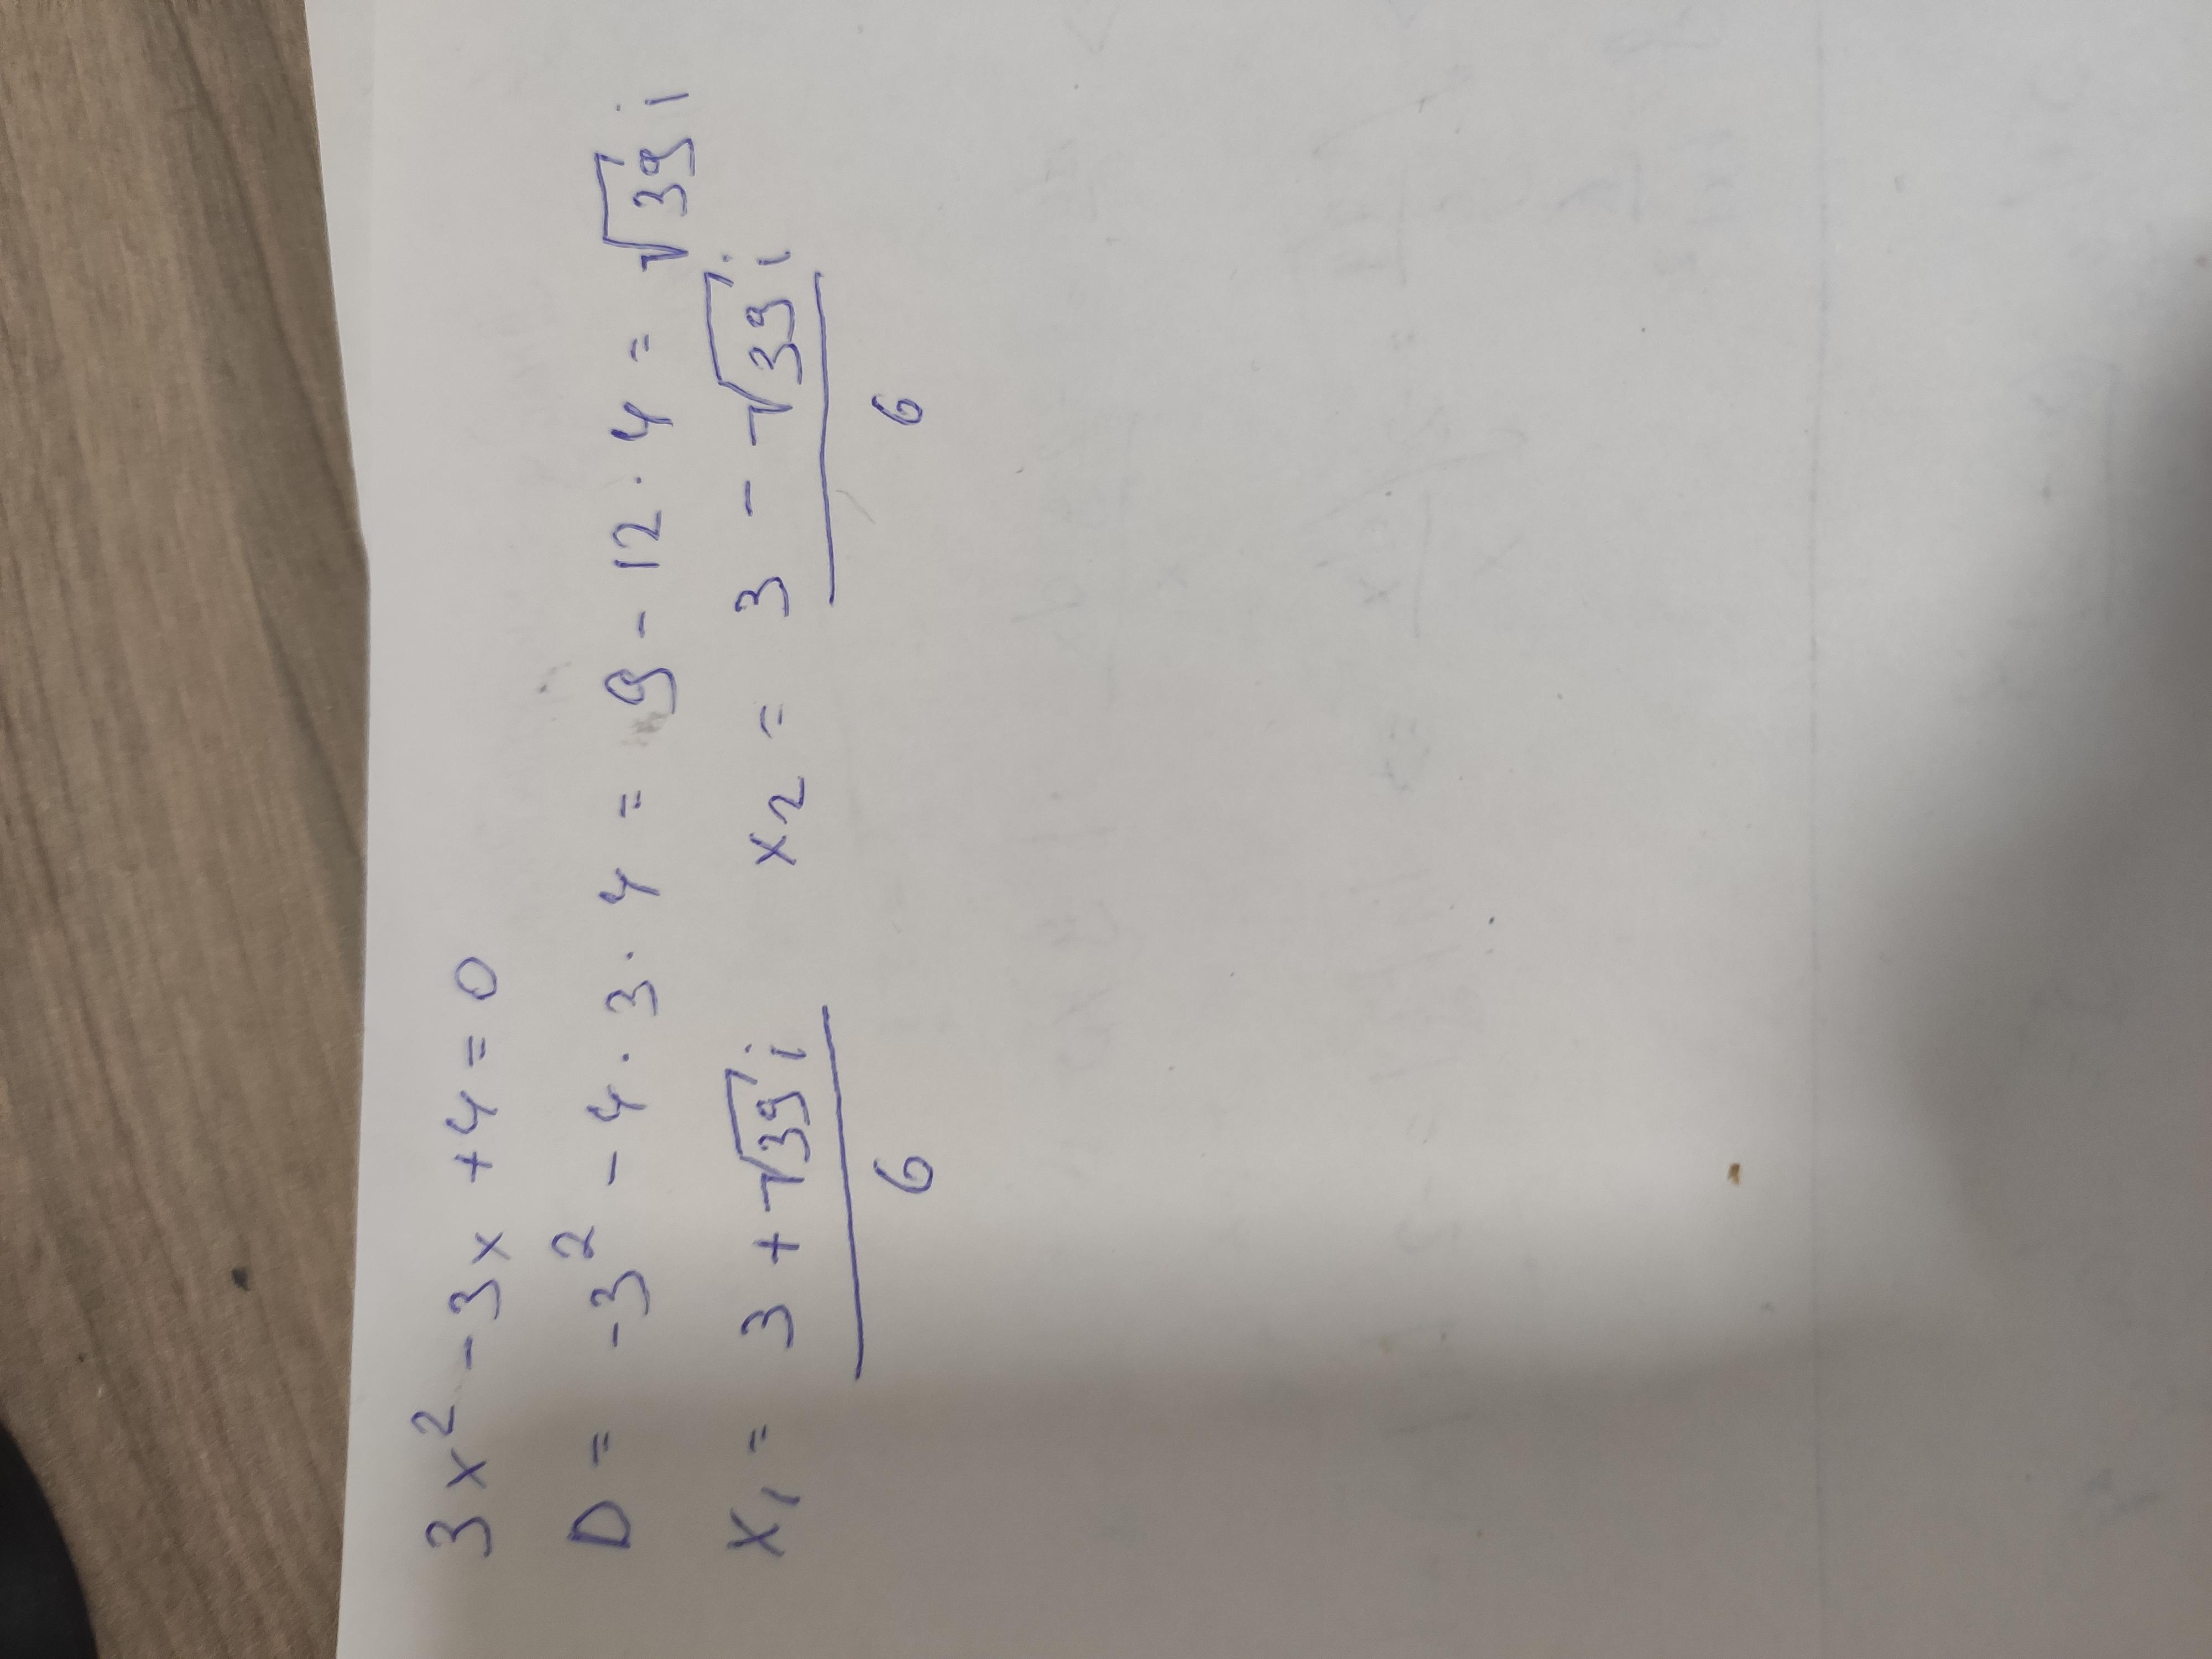 3x² - 3x + 4 = 0
D = -3² - 4 · 3 · 4 = 9 - 12 · 4 = √39 i
x₁ = (3 + √39 i) / 6 x₂ = (3 - √39 i) / 6